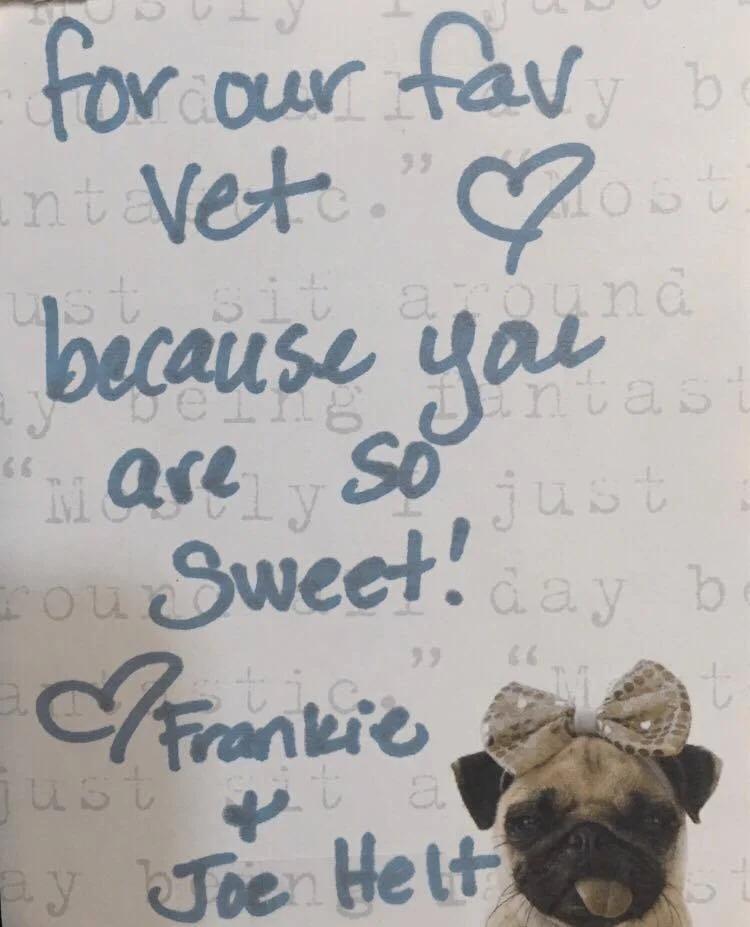 Mostly I just
for our fav
round all day be
vet
ntastic.” “Most
ust sit around
because you
ay being fantast
are so
“Mostly I just
Sweet!
round all day be
antastic.” “M t
Frankie
just sit a
&
Joe Helt
ay being st